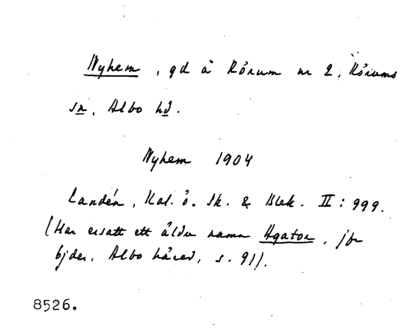 Nyhem, gd å Rörum nr 2, Rörums
sn, Albo hd.
Nyhem 1904
Landén, Kal. ö. Sk. & Blek. II: 999.
(Har ersatt ett äldre namn Agaton, jfr
bjder, Albo härad, s. 91).
8526.